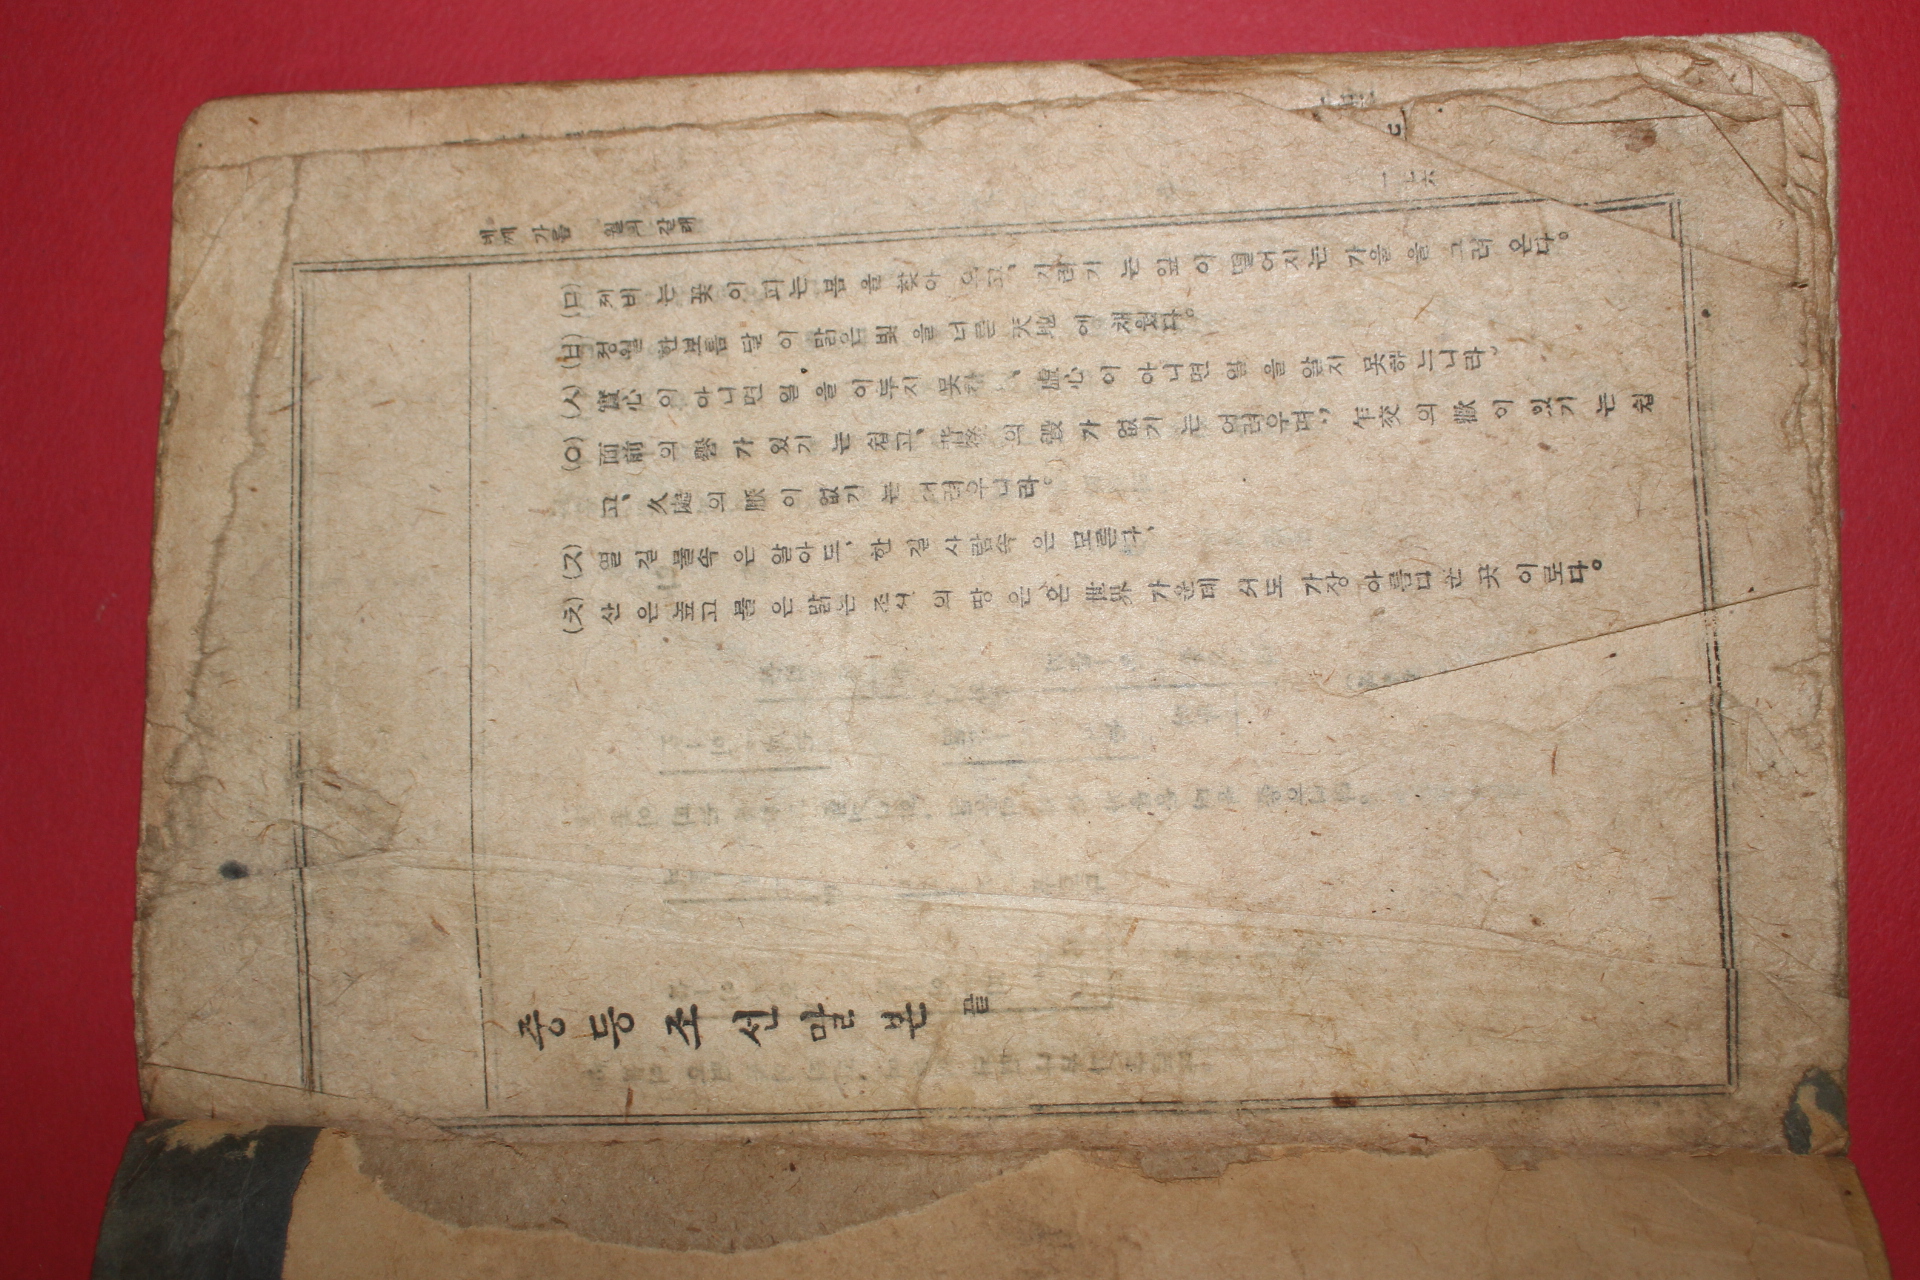 세째 가름 월의 갈래
一七六
(ㅁ) 제비 는 꽃 이 피는 봄 을 찾아 오고, 기러기 는 잎 이 떨어지는 가을 을 그려 온다。
(ㅂ) 정월 한보름 달 이 맑은 빛 을 너른 天地 에 채웠다。
(ㅅ) 實心 이 아니면 일 을 이루지 못하고, 虛心 이 아니면 일 을 알지 못하느니라。
(ㅇ) 面前 의 譽 가 있기 는 쉽고, 背後 의 毁 가 없기 는 어려우며, 乍交 의 歡 이 있기 는 쉽
고, 久處 의 厭 이 없기 는 어려우니라。
(ㅈ) 열 길 물속 은 알아도, 한 길 사람속 은 모른다、
(ㅊ) 산 은 높고 물 은 맑는 조선 의 땅 은 온 世界 가운데 서도 가장 아름다운 곳 이로다。
중등조선말본 끝